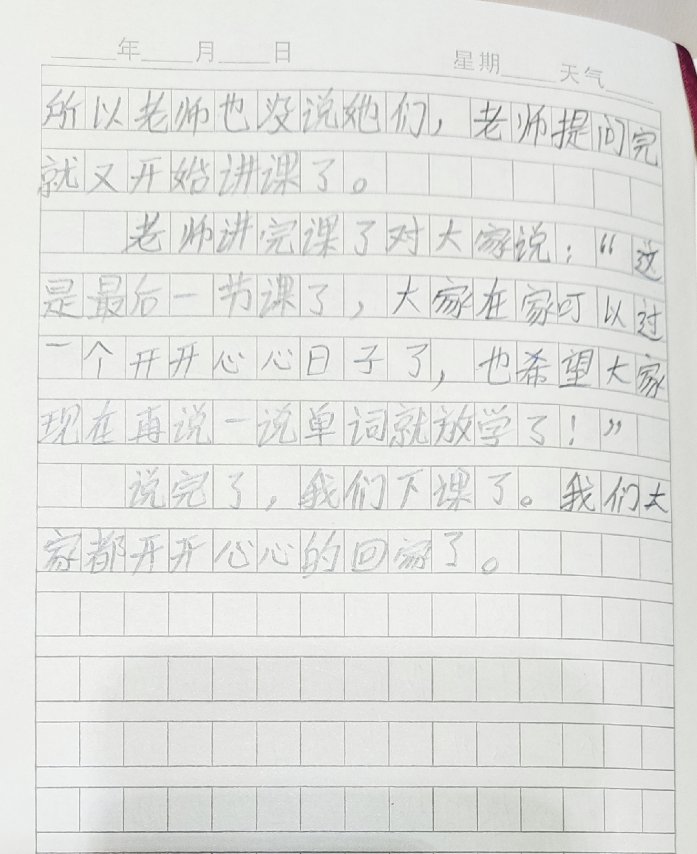 年 月 日 星期 天气
所以老师也没说她们，老师提问完
就又开始讲课了。
老师讲完课了对大家说：“这
是最后一节课了，大家在家可以过
一个开开心心日子了，也希望大家
现在再说一说单词就放学了！”
说完了，我们下课了。我们大
家都开开心心的回家了。